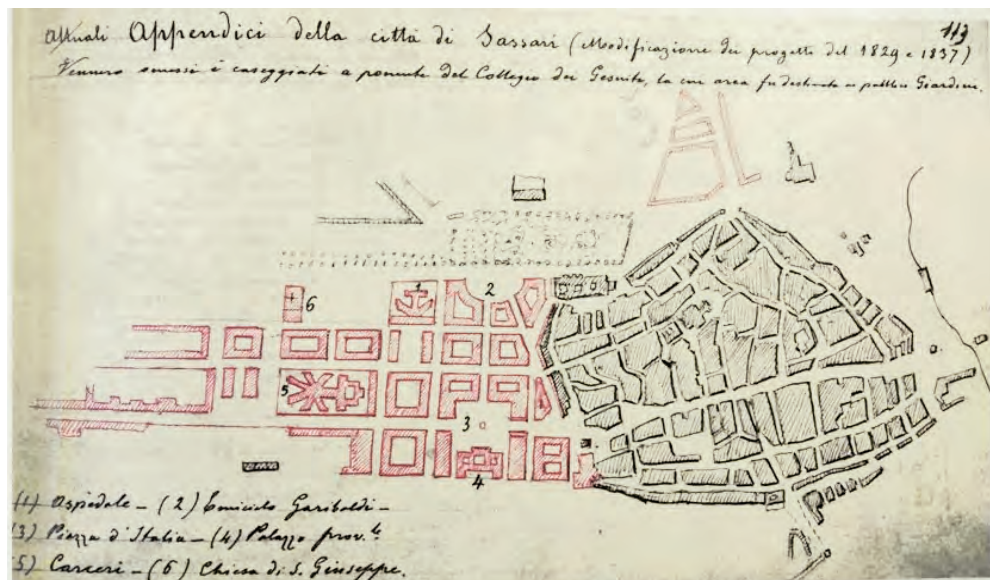 113
Attuali Appendici della città di Sassari (Modificazione dei progetti del 1829 e 1837)
Vennero smessi i caseggiati a ponente del Collegio dei Gesuiti, la cui area fu destinata a pubblico Giardino.
1
2
6
5
3
4
(1) Ospedale – (2) Emiciclo Garibaldi –
(3) Piazza d'Italia – (4) Palazzo prov.le
(5) Carceri – (6) Chiesa di S. Giuseppe.